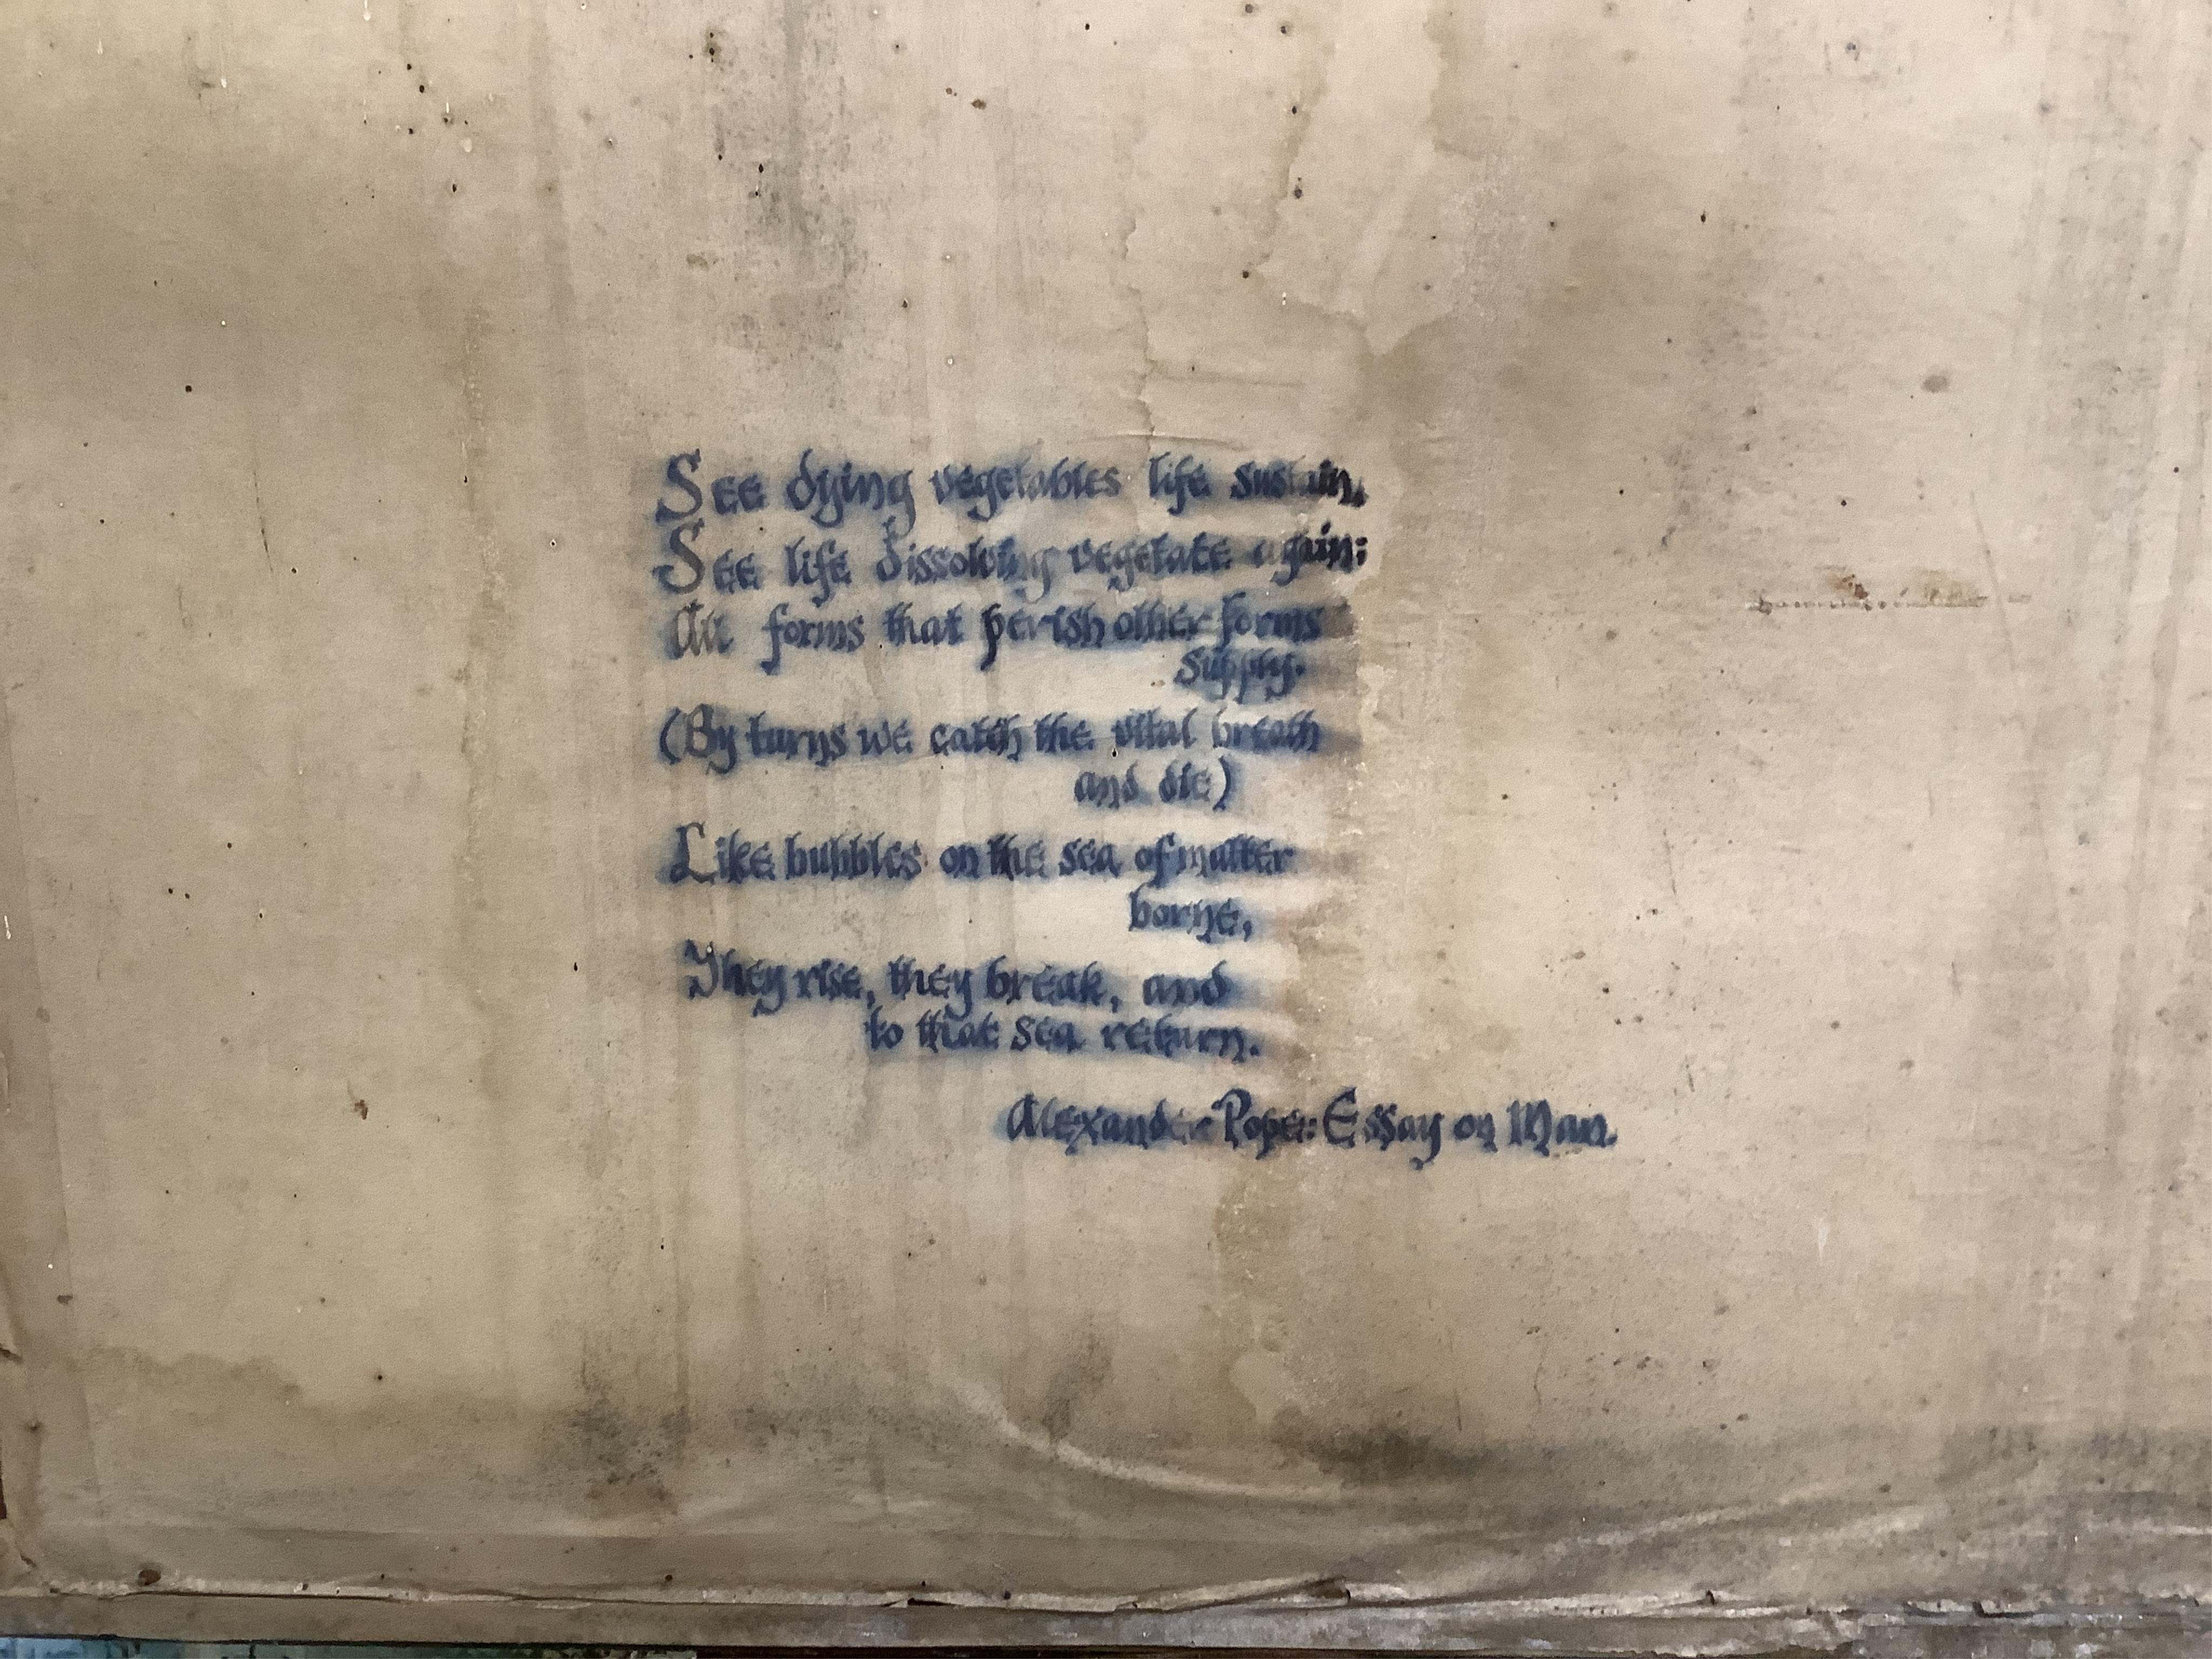 See dying vegetables life sustain,
See life dissolving vegetate again:
All forms that perish other forms
supply.
(By turns we catch the vital breath
and die)
Like bubbles on the sea of matter
borne,
They rise, they break, and
to that sea return.
Alexander Pope: Essay on Man.